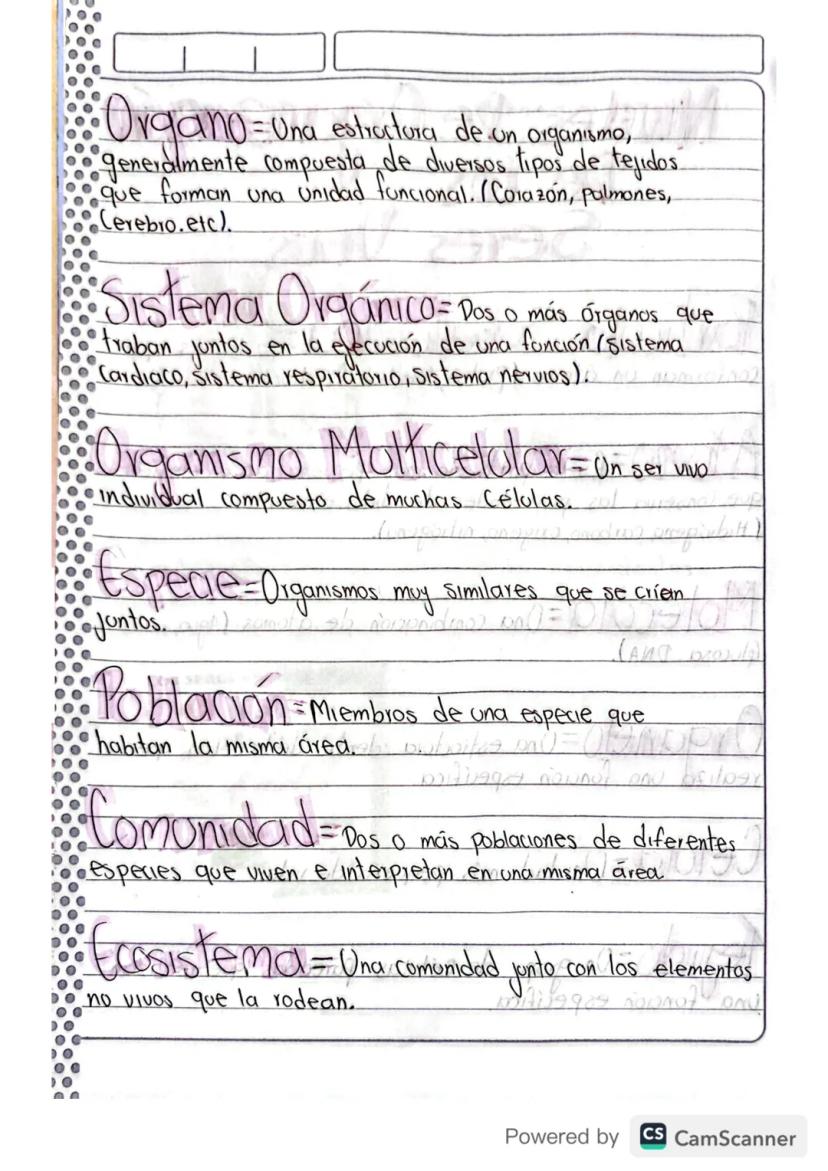 Órgano = Una estructura de un organismo,
generalmente compuesta de diversos tipos de tejidos
que forman una unidad funcional. (Corazón, pulmones,
Cerebro.etc).
Sistema Orgánico = Dos o más órganos que
traban juntos en la ejecución de una función (sistema
Cardiaco, sistema respiratorio, sistema nervios).
Organismo Multicelular = Un ser vivo
individual compuesto de muchas Células.
Especie = Organismos muy similares que se críen
juntos.
Población = Miembros de una especie que
habitan la misma área.
Comunidad = Dos o más poblaciones de diferentes
especies que viven e interpretan en una misma área
Ecosistema = Una comunidad junto con los elementos
no vivos que la rodean.
Powered by CS CamScanner